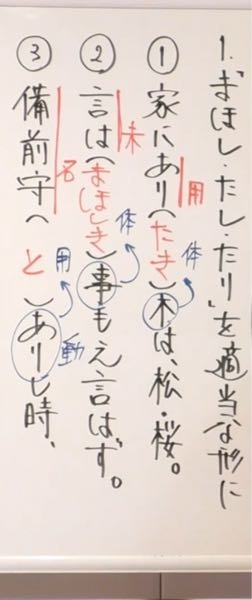 1.「まほし・たし・たり」を適当な形に
①家にあり(たき)木は、松・桜。
用
体
②言は(まほしき)事もえ言はず。
未
体
③備前守(と)ありし時、
名
用
動